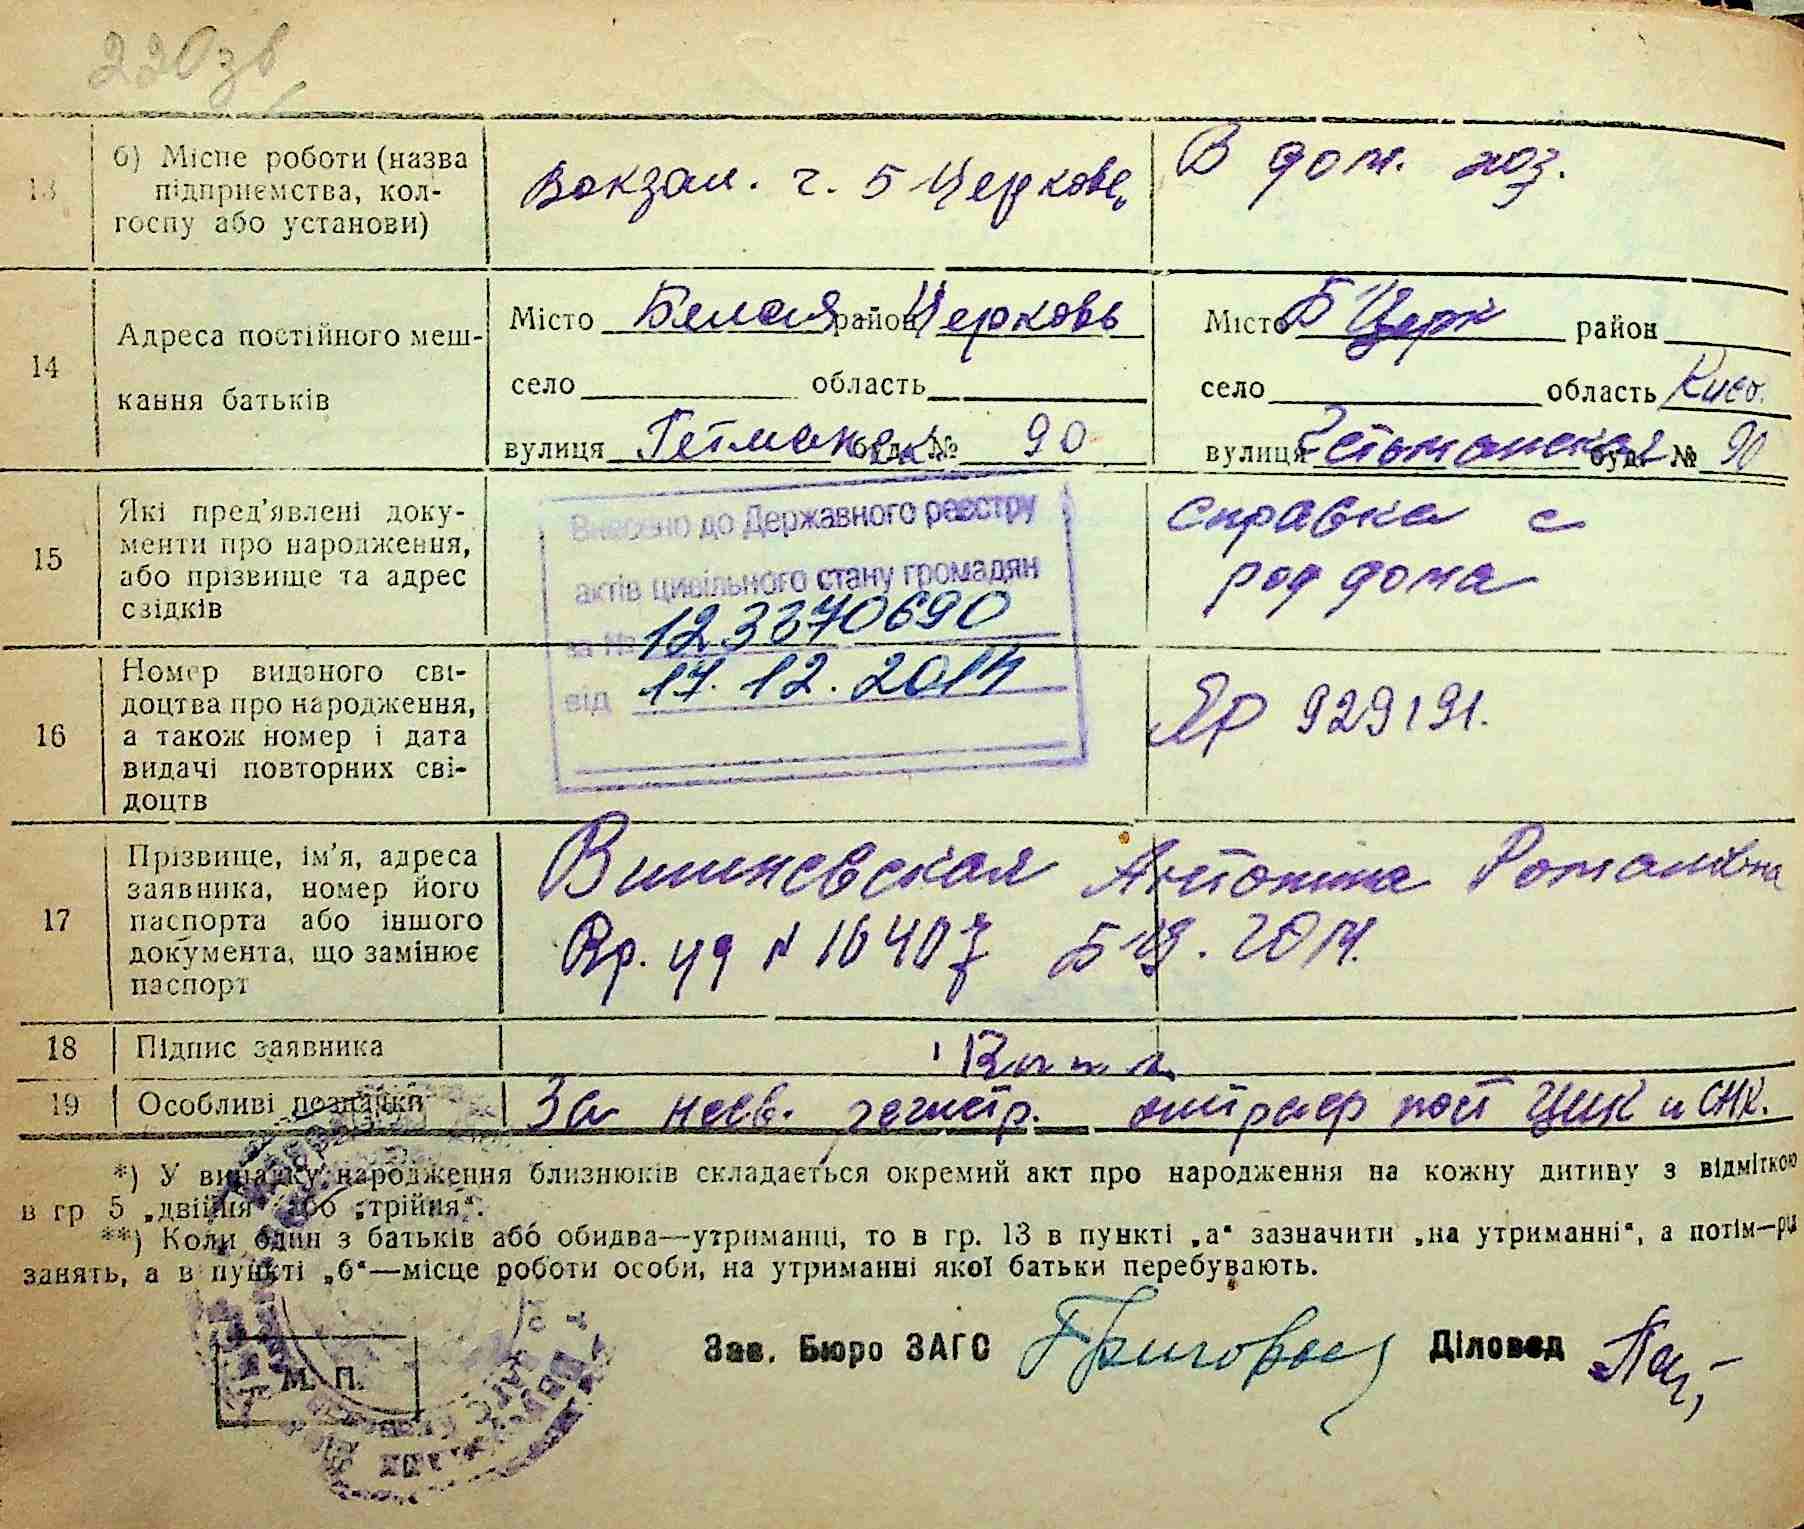 220зв
13
б) Місце роботи (назва
підприємства, кол-
госпу або установи)
Вокзал. г. Б Церковь
В дом. хоз.
14
Адреса постійного меш-
кання батьків
Місто Белая район Церковь
село область
вулиця Гетманск. буд. № 90
Місто Б Церк район
село область Киев.
вулиця Гетьманская буд. № 90
15
Які пред'явлені доку-
менти про народження,
або прізвище та адрес
свідків
Внесено до Державного реєстру
актів цивільного стану громадян
за №
від 17.12.2014
справка с
род дома
16
Номер виданого сві-
доцтва про народження,
а також номер і дата
видачі повторних сві-
доцтв
ЯР 929191.
17
Прізвище, ім'я, адреса
заявника, номер його
паспорта або іншого
документа, що замінює
паспорт
Вишневская Антонина Романовна
№ 16407
18
Підпис заявника
19
Особливі позначки
За несв. регистр. штраф пост ЦИК и СНК.
*) У випадку народження близнюків складається окремий акт про народження на кожну дитину з відміткою
в гр 5 „двійня“ або „трійня“.
**) Коли один з батьків або обидва—утриманці, то в гр. 13 в пункті „а“ зазначити „на утриманні“, а потім—рід
занять, а в пункті „б“—місце роботи особи, на утриманні якої батьки перебувають.
М. П.
Зав. Бюро ЗАГС
Діловод